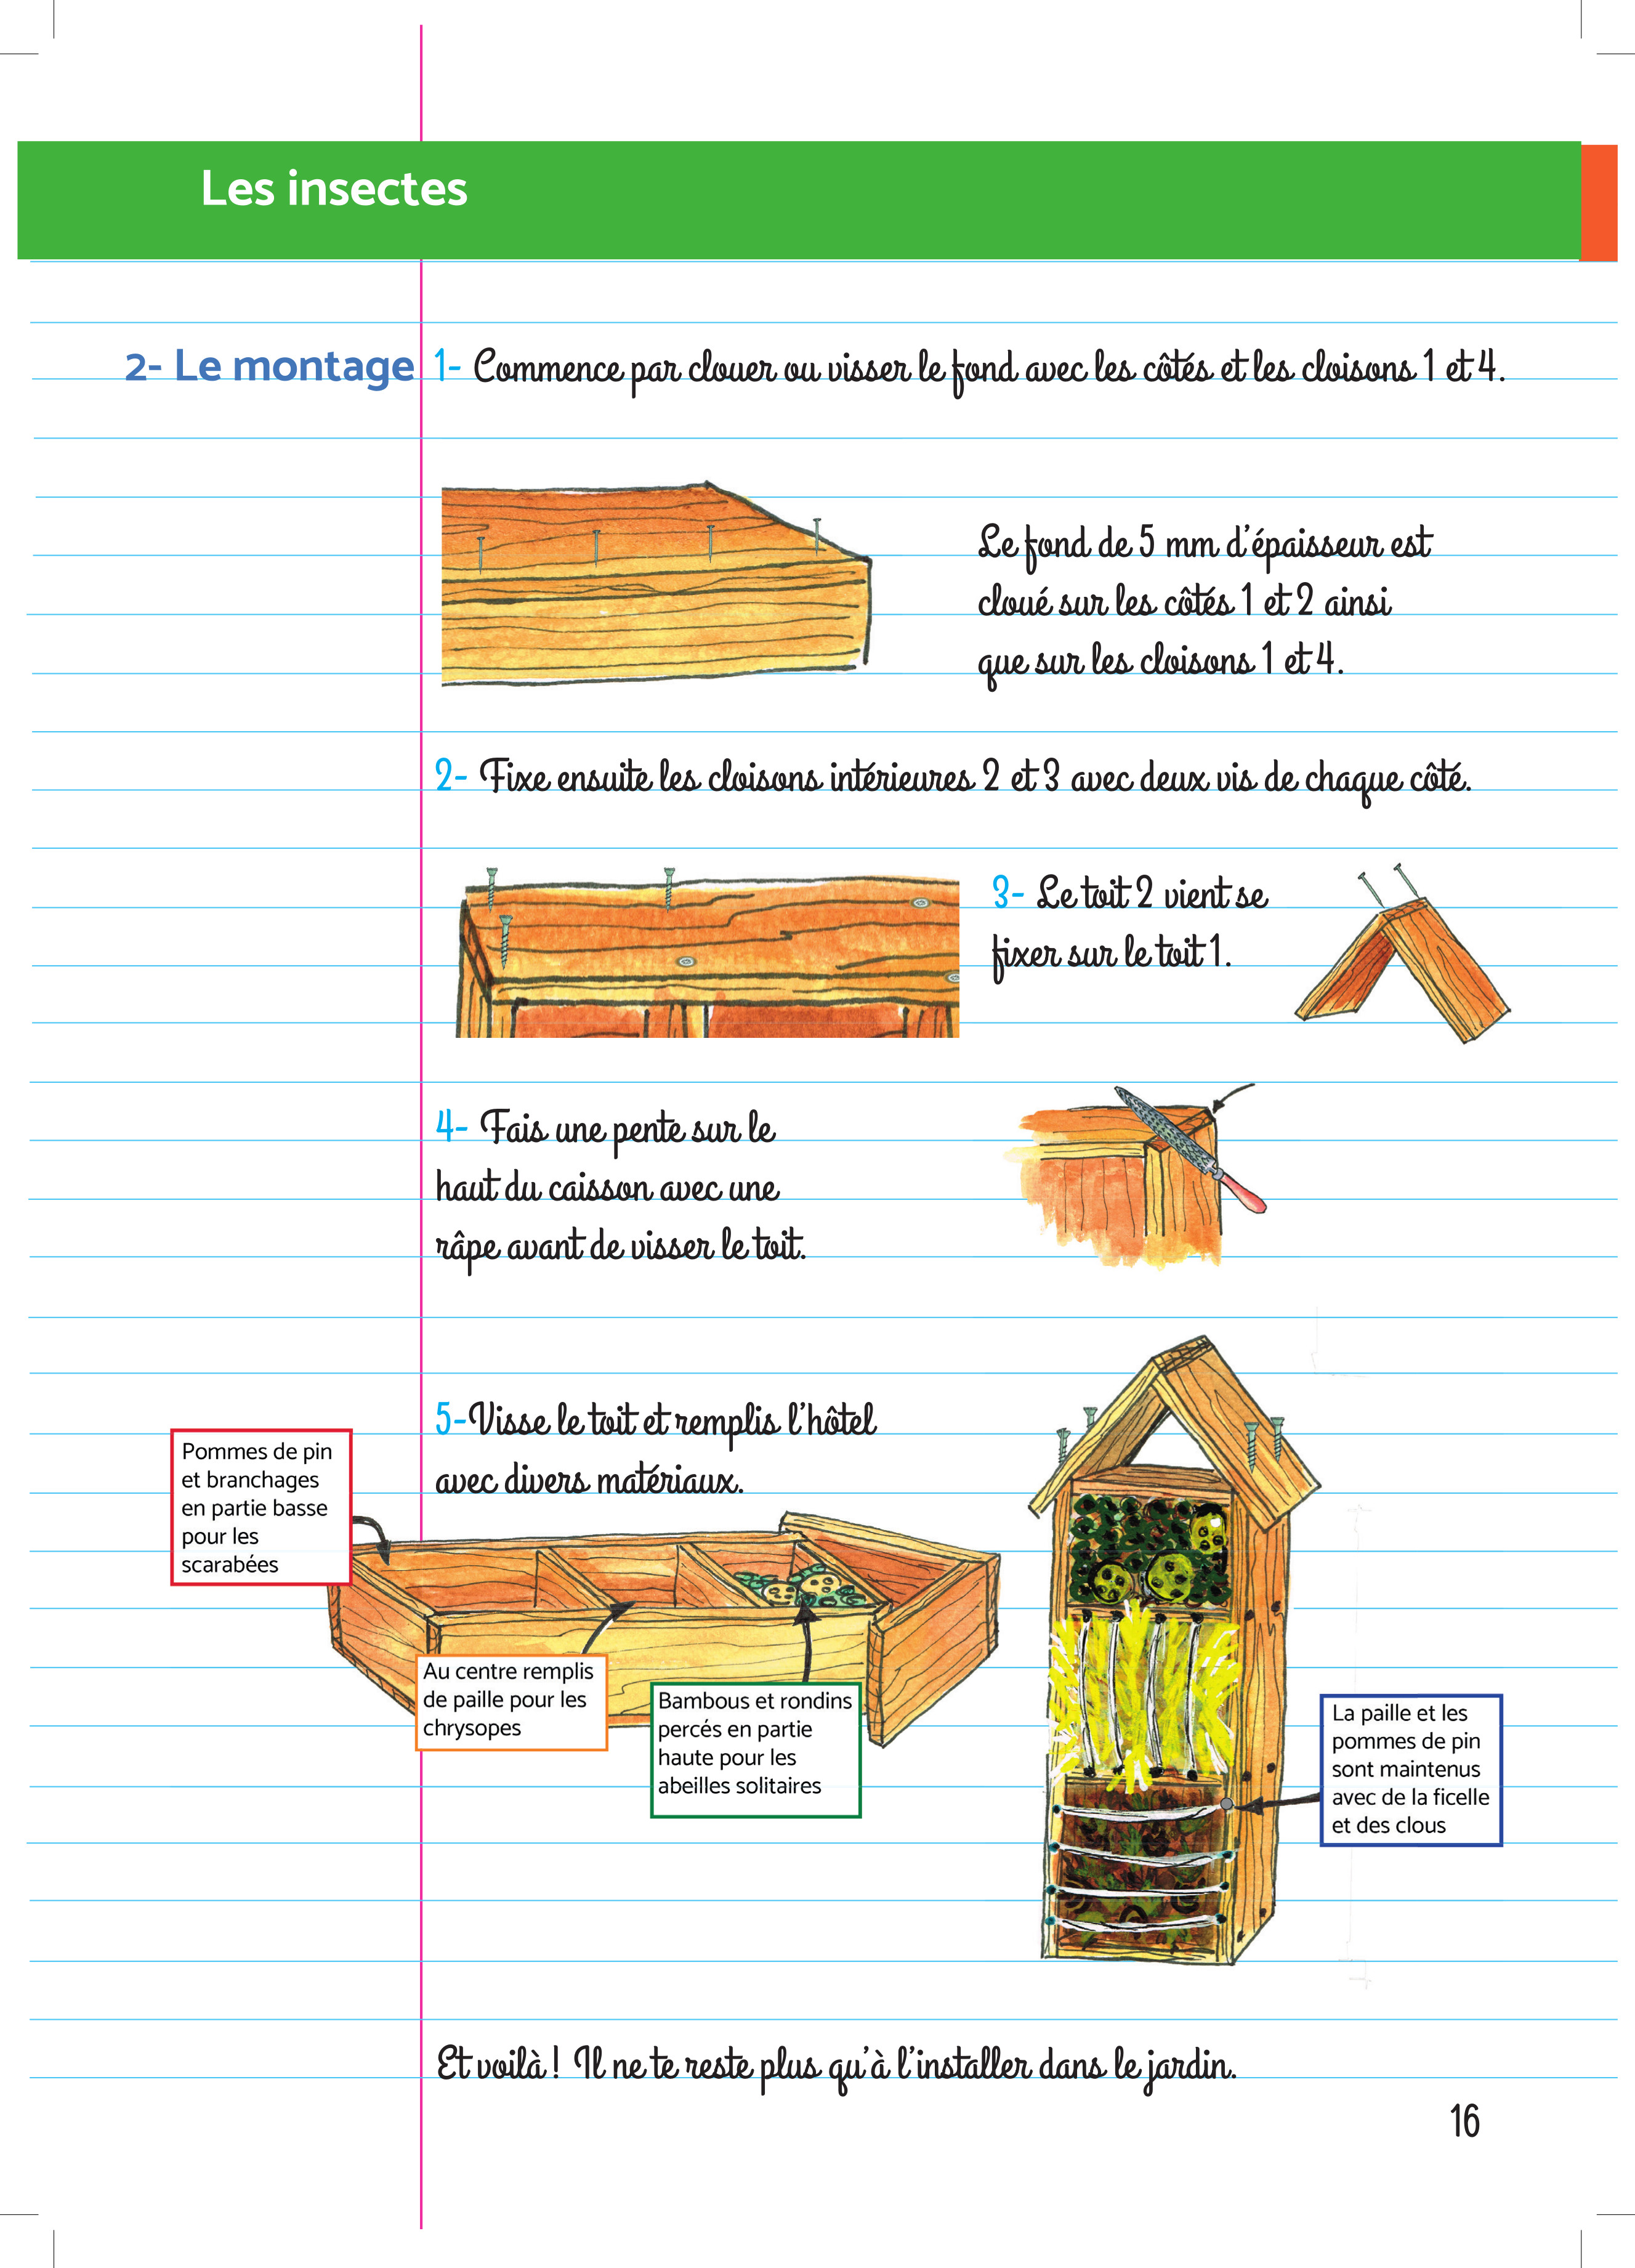 Les insectes
2- Le montage
1- Commence par clouer ou visser le fond avec les côtés et les cloisons 1 et 4.
Le fond de 5 mm d'épaisseur est
cloué sur les côtés 1 et 2 ainsi
que sur les cloisons 1 et 4.
2- Fixe ensuite les cloisons intérieures 2 et 3 avec deux vis de chaque côté.
3- Le toit 2 vient se
fixer sur le toit 1.
4- Fais une pente sur le
haut du caisson avec une
râpe avant de visser le toit.
5-Visse le toit et remplis l'hôtel
avec divers matériaux.
Pommes de pin
et branchages
en partie basse
pour les
scarabées
Au centre remplis
de paille pour les
chrysopes
Bambous et rondins
percés en partie
haute pour les
abeilles solitaires
La paille et les
pommes de pin
sont maintenus
avec de la ficelle
et des clous
Et voilà ! Il ne te reste plus qu'à l'installer dans le jardin.
16